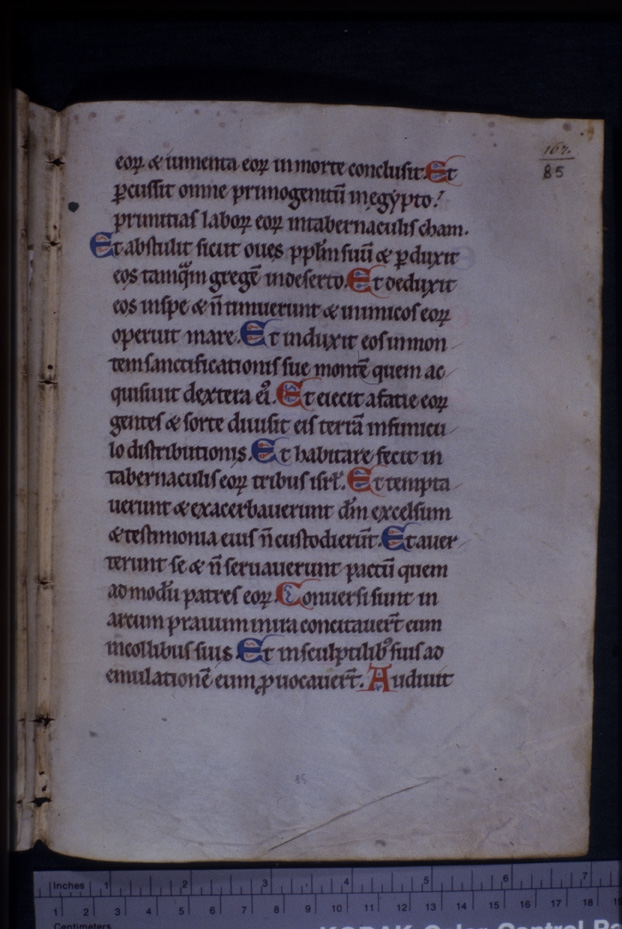 167.
85
eoꝝ & iumenta eoꝝ in morte conclusit. Et
ꝑcussit omne primogenitū in egypto!
primitias laboꝝ eoꝝ in tabernaculis cham.
Et abstulit sicut oues pplm̄ suū & ꝑduxit
eos tamqm̄ gregē in deserto. Et deduxit
eos in spe & n̄ timuerunt & inimicos eoꝝ
operuit mare. Et induxit eos in mon
tem sanctificationis sue montē quem ac
quisiuit dextera eiꝰ. Et eiecit a facie eoꝝ
gentes & sorte diuisit eis terrā in funicu
lo distributionis. Et habitare fecit in
tabernaculis eoꝝ tribus isrl̄. Et tempta
uerunt & exacerbauerunt dm̄ excelsum
& testimonia eius n̄ custodierūt. Et auer
terunt se & n̄ seruauerunt pactū quem
admodū patres eoꝝ. Conuersi sunt in
arcum prauum in ira concitauer̄t eum
in collibus suis. Et in sculptilibꝰ suis ad
emulationē eum ꝓuocauer̄t. Audiuit
85
Inches 1 2 3 4 5 6 7
1 2 3 4 5 6 7 8 9 10 11 12 13 14 15 16 17 18
Centimetres
KODAK Color Control Pa